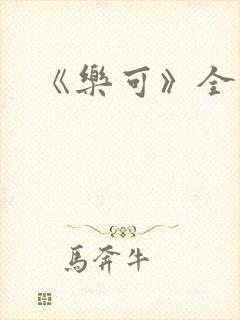 《樂可》全
馬奔牛